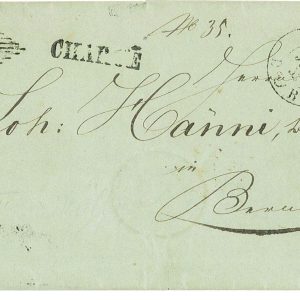 CHARGÉ
No 35.
Herrn
Joh: Hänni,
in
Bern